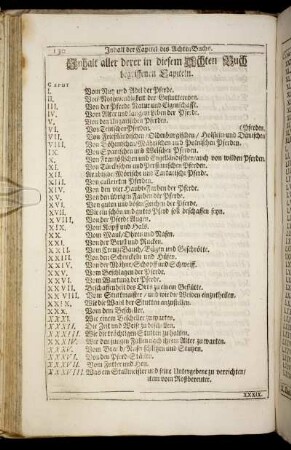 130 Inhalt der Capitel des Achten Buchs.
Inhalt aller derer in diesem Achten Buch
begriffenen Capiteln.
CAPUT
I. Vom Nutz und Adel der Pferde.
II. Von Notwendigkeit der
III. Von der Pferde Natur und Eigenschafft.
IV. Vom Alter und langem Leben der Pferde.
V. Von den Ungarischen Pferden.
VI. Von Teutschen Pferden.
VII. Von Frießländischen, Oldenburgischen, Holstein und Dänischen
VIII. Von Böhmischen, Mährischen und Polnischen Pferden.
IX. Von Spanischen und Welschen Pferden.
X. Von Frantzösischen und Engelländischen, auch von wilden Pferden.
XI. Von Türckischen und Persianischen Pferden.
XII. Arabische, Mohrische und Tartarische Pferde.
XIII. Von
XIV. Von den vier Haupt-Farben der Pferde.
XV. Von den übrigen Farben der Pferde.
XVI. Von guten und bösen Zeichen der Pferde.
XVII. Wie ein schön Pferd soll beschaffen seyn.
XVIII. Von der Pferde Augen.
XIX. Vom Kopff und Hals.
XX. Vom Maul, Ohren und Nasen.
XXI. Von der Brust und Rucken.
XXII. Vom Creutz, Bauch, Bügen und Geschröte.
XXIII. Von den Schenckeln und Hüfen.
XXIV. Von der Mähne, Schopff und Schweiff.
XXV. Vom Beschlagen der Pferde.
XXVI. Vom Wartung der Pferde.
XXVII. Beschaffenheit des Orts zu einem Gestütte.
XXVIII. Vom Stuttmeister, und wie die Weiden einzutheilen.
XXIX. Wie die Waid der Stutten anzustellen.
XXX. Von dem Bescheller.
XXXI. Wie einem Bescheller zu warten.
XXXII. Die Zeit und Weis zu beschellen.
XXXIII. Wie die trächtigen Stutten zu halten.
XXXIV. Wie der jungen Füllen nach ihrem Alter zu warten.
XXXV. Vom
XXXVI. Von den Pferd-Ställen.
XXXVII. Vom Futter und Heu.
XXXVIII. Was ein Stallmeister und seine Untergebene zu verrichten,
item vom Roßbereuter.
XXXIX.